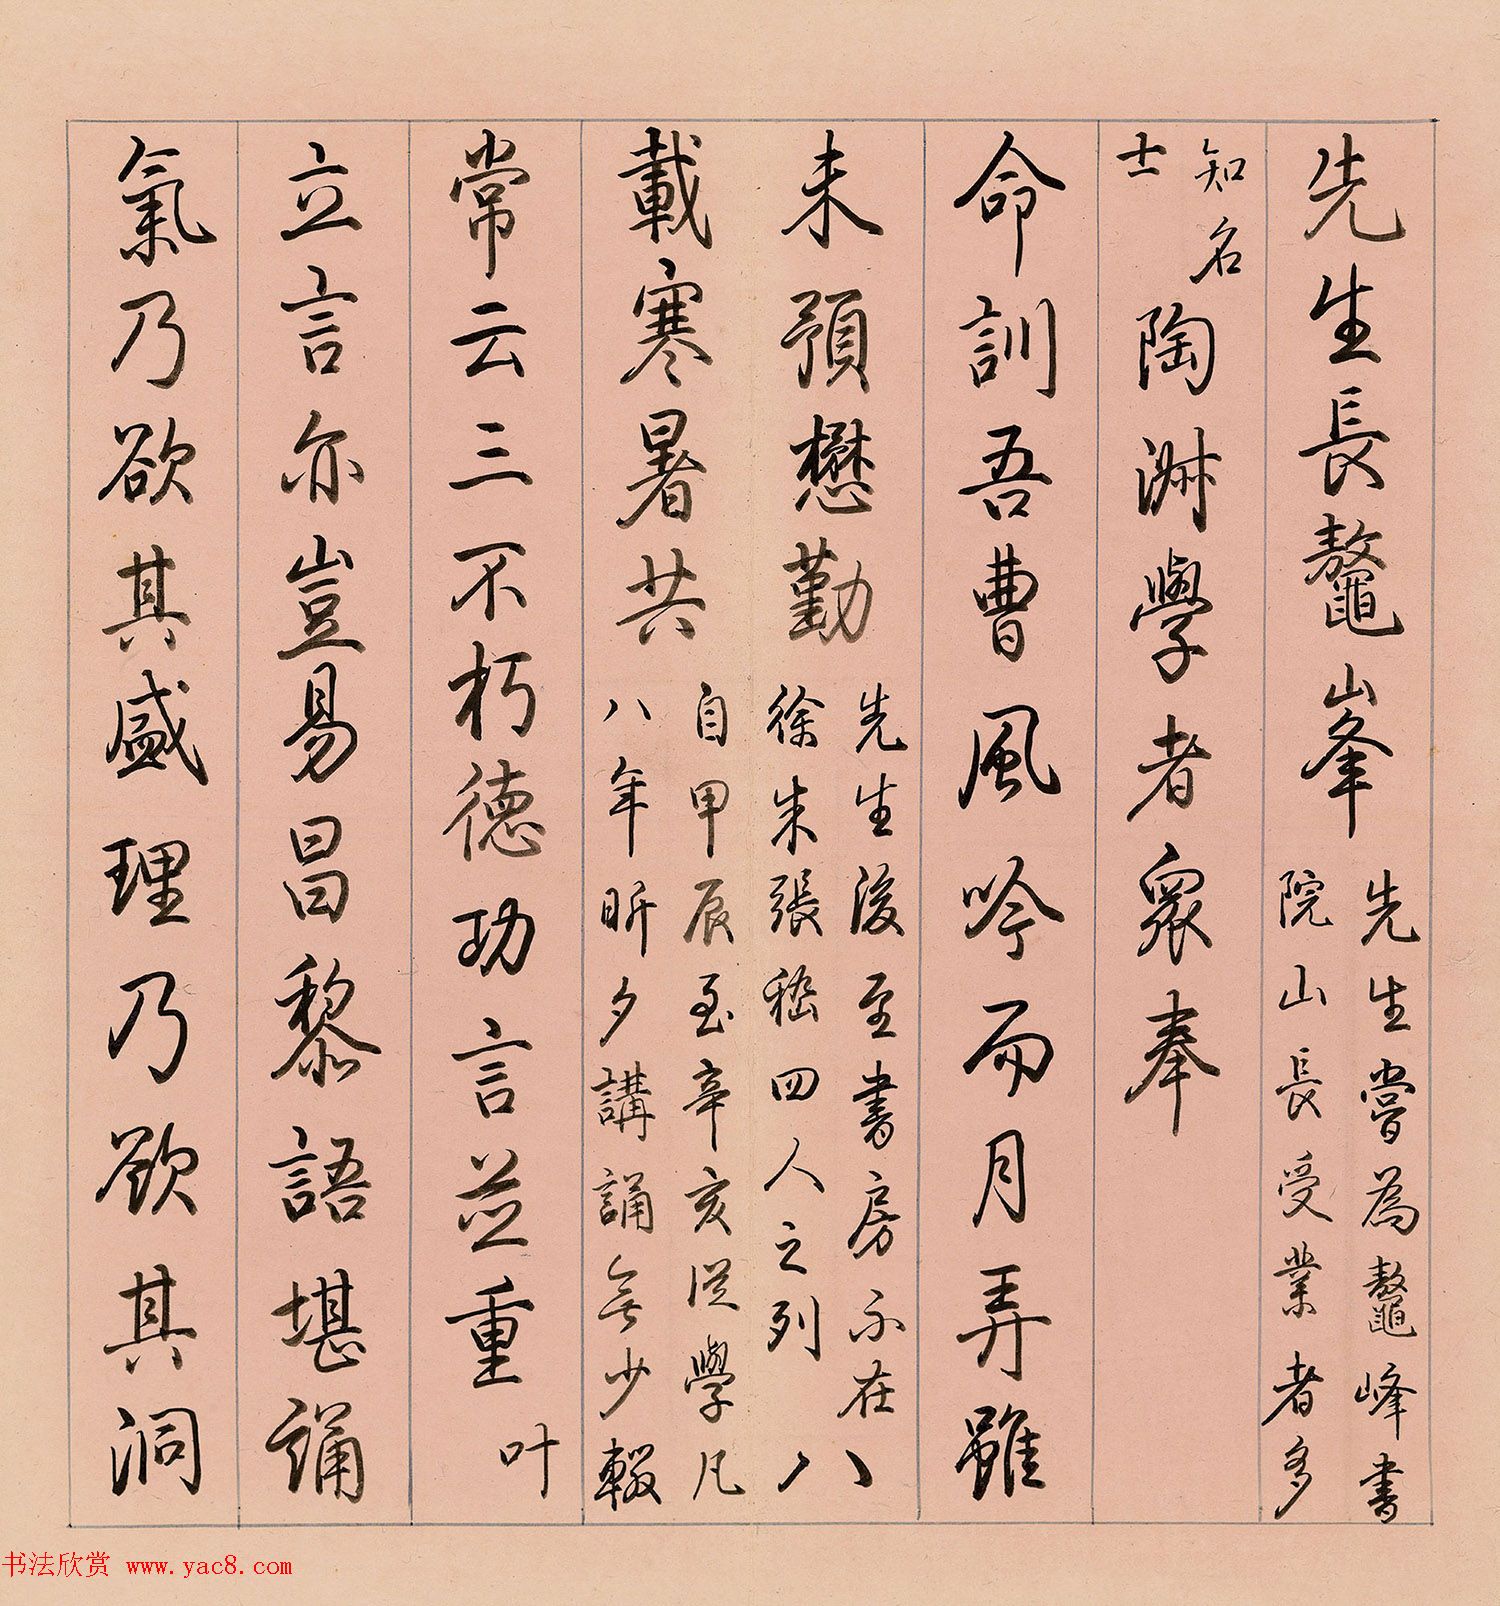 先生長鰲峯先生嘗為鰲峰書院山長受業者多
知名士陶淑學者衆奉
命訓吾曹風吟而月弄雖
未預懋勤先生後至書房不在徐朱張嵇四人之列八
載寒暑共自甲辰至辛亥從學凡八年昕夕講誦無少輟
常云三不朽德功言並重叶
立言亦豈易昌黎語堪誦
氣乃欲其盛理乃欲其洞
书法欣赏 www.yac8.com